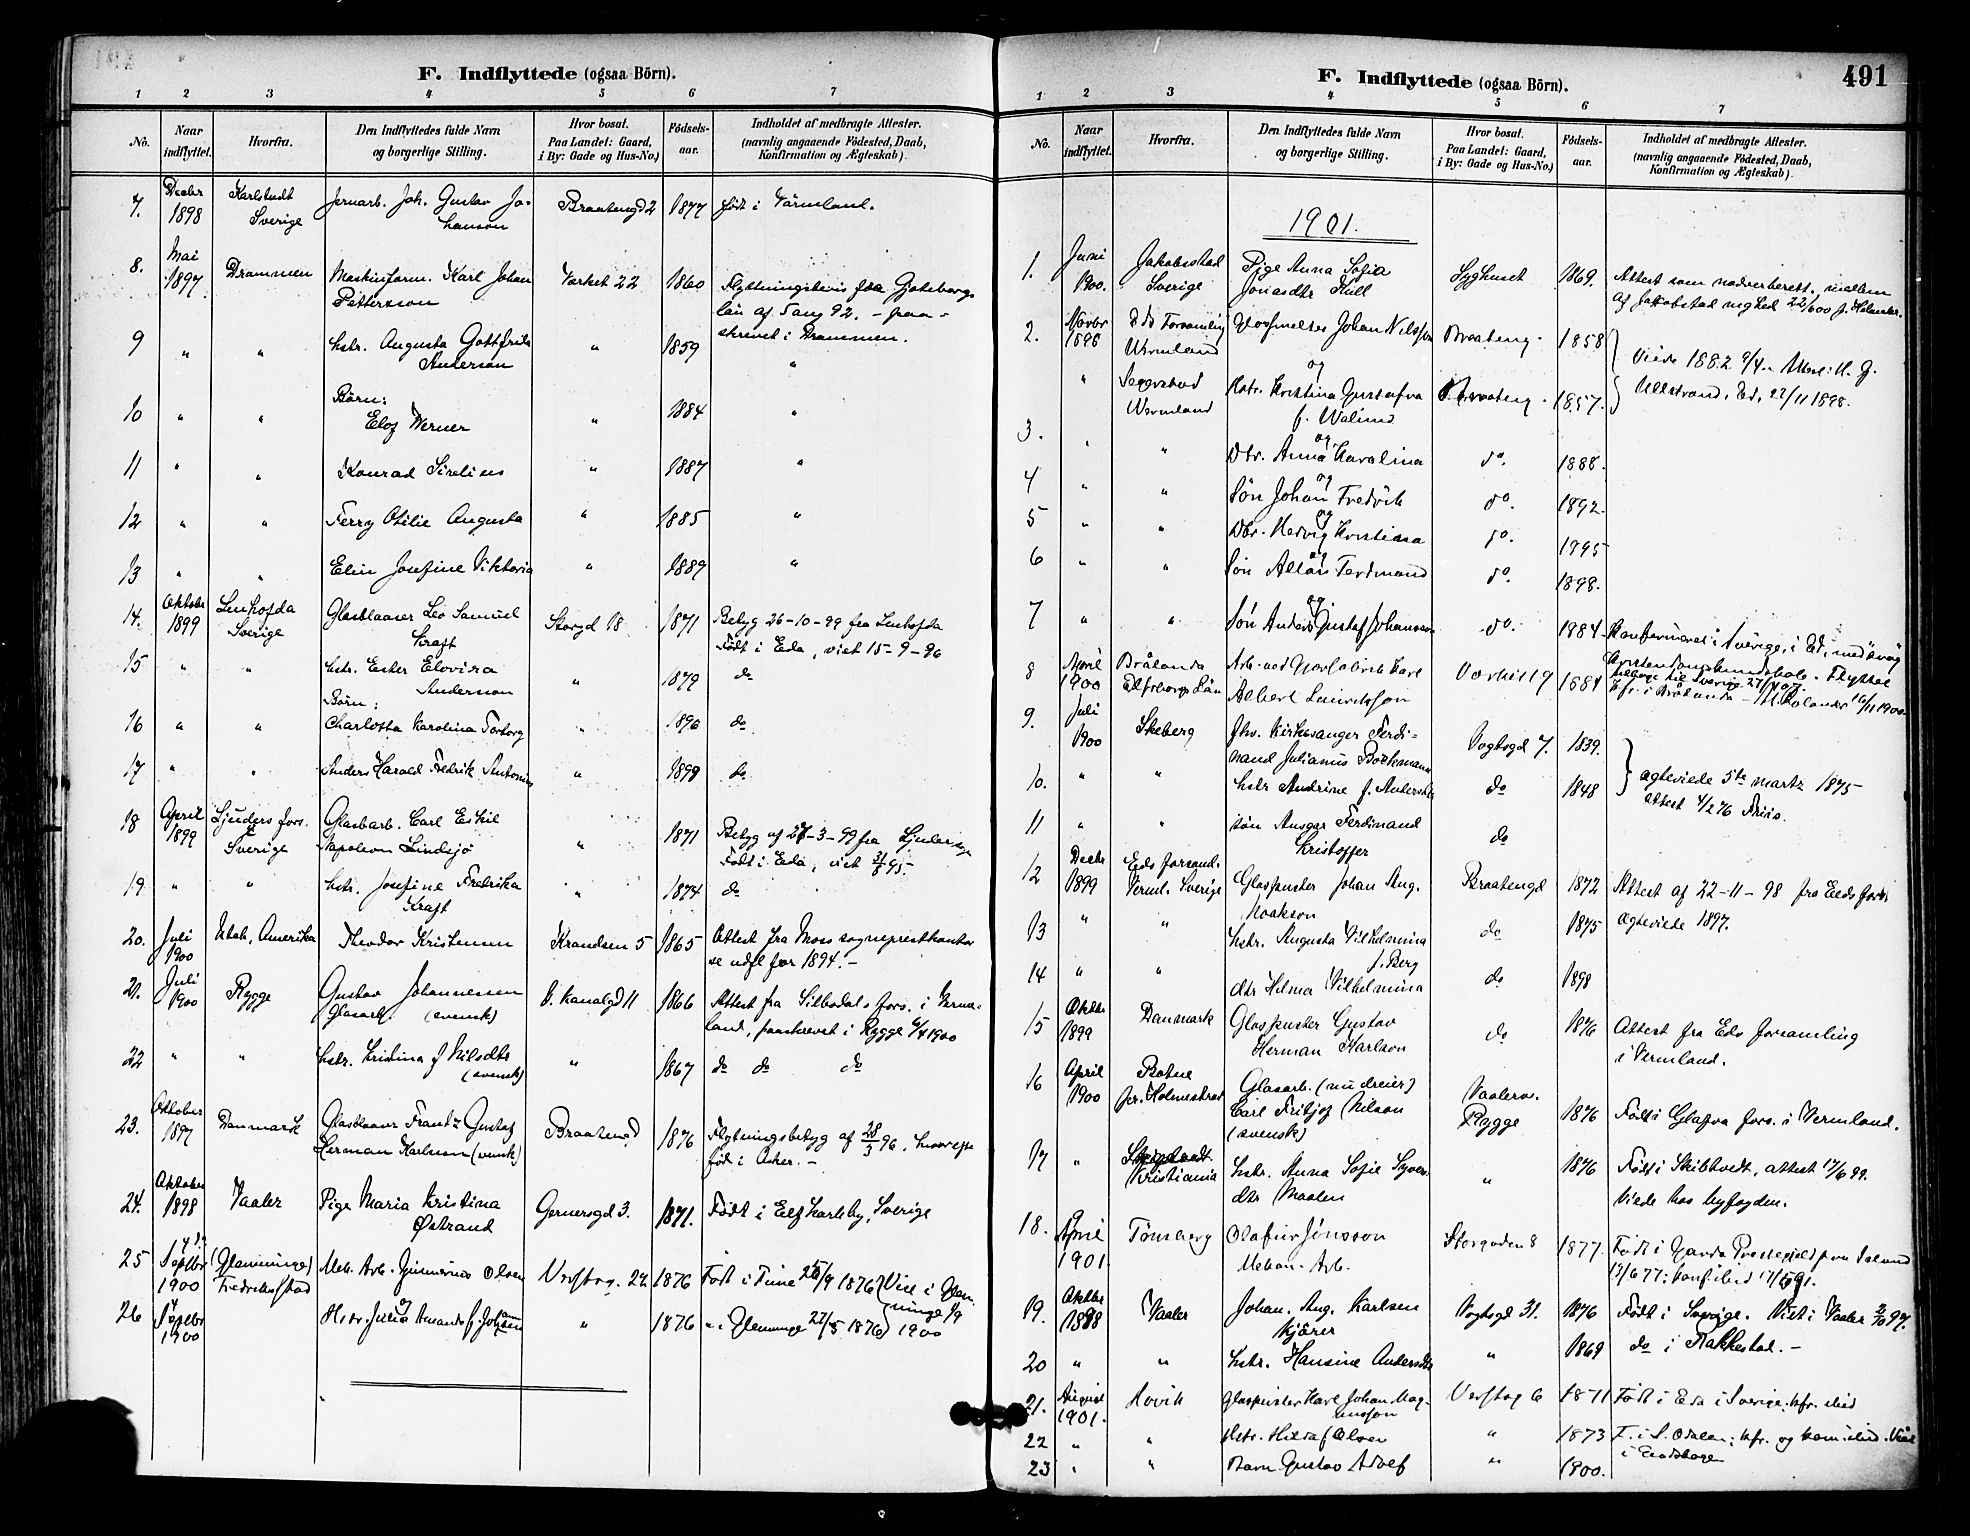 F. Indflyttede (ogsaa Börn).
1 2 3 4 5 6 7
No. Naar indflyttet. Hvorfra. Den Indflyttedes fulde Navn og borgerlige Stilling. Hvor bosat. Paa Landet: Gaard, i By: Gade og Hus-No.) Födsels-aar. Indholdet af medbragte Attester. (navnlig angaaende Födested, Daab, Konfirmation og Ægteskab).
7. Decbr 1898 Karlstadt Sverige Jernarb. Joh. Gustav Johanson Braatengd 2 1877 født i Värmland.
8. Mai 1897 Drammen Maskinform. Karl Johan Petterson Værket 22 1860 Flytningsbevis fra Gøteborgs län af 5 aug 92. - paaskrevet i Drammen.
9 " " hstr. Augusta Gottfrida Anderson " 1859 "
Børn:
10 " " Elof Werner " 1884 "
11 " " Konrad Sirelius " 1887 "
12 " " Ferry Otilie Augusta " 1885 "
13 " " Elin Josefine Viktoria " 1889 "
14. Oktober 1899 Lenhofda Sverige Glasblaaser Leo Samuel Kraft Storgd 18 1871 Betyg 26-10-99 fra Lenhofda Født i Eda, viet 15-9-96
15 " " hstr. Ester Elovira Anderson " 1879 do
Børn:
16 " " Charlotta Karolina 1896 do
17 " " Anders Harald Fredrik Antonius " 1899 do
18 April 1899 Ljuders fors. Sverige Glasarb. Carl Eskil Napoleon Lindsjø " 1871 Betyg af 27-3-99 fra Født i Eda, viet
19 " " hstr. Josefine Fredrika Kraft " 1874 do
20. Juli 1900 Utah, Amerika Theodor Kristensen Krandsen 5 1865 Attest fra Moss sogneprestkontor se udfl for 1894. -
21. Juli 1900 Rygge Gustav Johannessen Glasarb. (svensk) Kanalgd 11 1866 Attest fra Silbodals fors. i Vermland, paaskrevet i Rygge 1900
22 " " hstr. Kristina f Nilsdtr (svensk) " 1867 do do do
23. Oktober 1897 Danmark Glasblaaser Frantz Gustaf Herman Karlsson (svensk) Braatengd 1876 Flytningsbetyg af 28/3 96, hvorefter fød i Asker. -
24. Oktober 1898 Vaaler Pige Maria Kristina Østrand Gernersgd 3. 1871. Født i Elfkarleby, Sverige
25 Septbr 1900 (Glemminge) Fredriksstad Mek. Arb. Olsen Verftsg. 22 1876 Født i Tune 1876 Viet i Glemminge 1900
26 Septbr 1900 og Hstr. Julie Amanda f. Johansen " 1876 " i Glemminge 1876
F. Indflyttede (ogsaa Börn).
491
1 2 3 4 5 6 7
No. Naar indflyttet. Hvorfra. Den Indflyttedes fulde Navn og borgerlige Stilling. Hvor bosat. Paa Landet: Gaard, i By: Gade og Hus-No.) Födsels-aar. Indholdet af medbragte Attester. (navnlig angaaende Födested, Daab, Konfirmation og Ægteskab).
1901.
1. Juni 1900. Jakobsstad Sverige Pige Anna Sofia Jonasdtr Kull Syghuset 1869. Attest som nadverberett. mellem af Jakobstad
2. Novbr 1898 Eds Forsamling Wermland Johan Nilsson Braateng. 1858 Viede 1882 Attest: H. G.
og
" Segerstad Wermland Hstr. Kristina Gustafva f. Walind Braateng. 1857. Ullstrand, Ed, 22/11 1898.
og
3. " " Dtr. Anna Karolina do. 1888.
og
4 " " Søn Johan Fredrik do. 1892.
og
5 " " Dtr. Hedvig Kristina do. 1895
og
6 " " Søn Allan Ferdinand do. 1898.
og
7 " " Søn Anders Gustaf Johansson do. 1884. Konfirmeret i Sverige, i Ed, med svag Kristendomskundskab. Flyttet tilbage til Sverige
8 April 1900 Brålanda Elfsborgs Län Arb. ved Karl Albert Værket 19 1884 Kfr. i Brålanda 16/11 1900.
9. Juli 1900 Skeberg fhv. Kirkesanger Ferdinand Julianus Bockmann Vogtsgd 7. 1839.
10. " " hstr Andrine f. do 1848 ægteviede 5te martz 1875 attest 4/2 76
11 " " søn Ansgar Ferdinand Kristoffer do
12 Decbr 1899 Eds forsaml. Verml. Sverige Glaspuster Johan Aug. Noakson Braatengd 1872 Attest af 22-11-98 fra Eds fors.
13 " " hstr. Augusta Vilhelmina f. Berg do 1875 Ægteviede 1897.
14 " " dtr Hilma Vilhelmina do 1898
15 Oktbr 1899 Danmark Glaspuster Gustav Herman Karlson do 1876 Attest fra Eds forsamling i Vermland.
16 April 1900 Botne pr. Holmestrand Glasarb. (nu dreier) Carl Fritjof Nilson (svensk) Vaalerv. Rygge 1876 Født i Glafva fors. i Vermland.
17 " Kristiania hstr. Anna Sofie Syversdtr Maalen " 1876 Født i Skibtvedt, attest 17/6 99. Viede hos byfogden.
18. April 1901. Tønsberg Olafur Jónsson Mekan. Arb. Storgaden 8 1877. Født i Garda Prestegjeld paa Island 17/6 77; konf. ibid
19. Oktbr 1898 Vaaler Johan. Aug. Karlsen Kjører Vogtsgd 31. 1876 Født i Sverige. Viet i Vaaler 97.
20 " " hstr. Hansine Andersdtr " 1869 do i Rakkestad. -
21. August 1901. Høvik Glaspuster Karl Johan Magnusson Verftsg 6 1871 Født i Eda i Sverige. kfr. ibid
22 " " Hstr. Hilda f Olsen " 1873 F. i S. Odalen; kfr. og kom. ibid. Viet i
23 " " Barn Gustav Adolf " 1900.